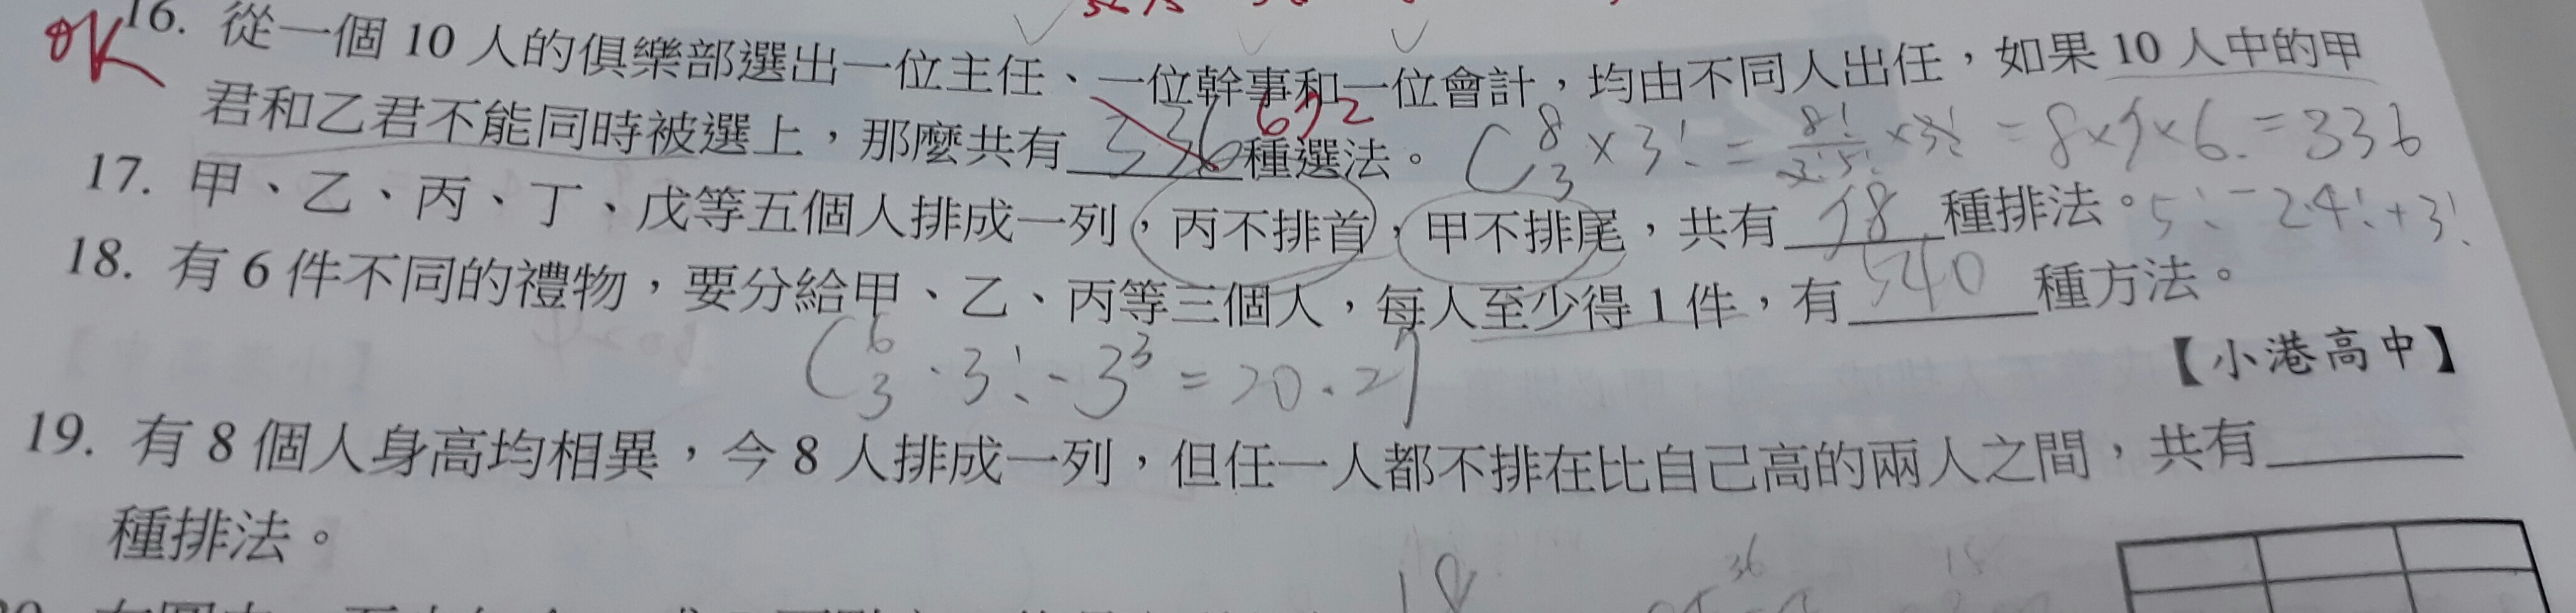 OK 16. 從一個 10 人的俱樂部選出一位主任、一位幹事和一位會計，均由不同人出任，如果 10 人中的甲
君和乙君不能同時被選上，那麼共有 336 672 種選法。 C 8 3 × 3! = 8! × 3! = 8×7×6 = 336
17. 甲、乙、丙、丁、戊等五個人排成一列，丙不排首，甲不排尾，共有 78 種排法。 5! - 2·4! + 3!
18. 有 6 件不同的禮物，要分給甲、乙、丙等三個人，每人至少得 1 件，有 540 種方法。
【小港高中】
C 6 3 · 3! - 3³ = 20 · 27
19. 有 8 個人身高均相異，今 8 人排成一列，但任一人都不排在比自己高的兩人之間，共有
種排法。
18 36 18